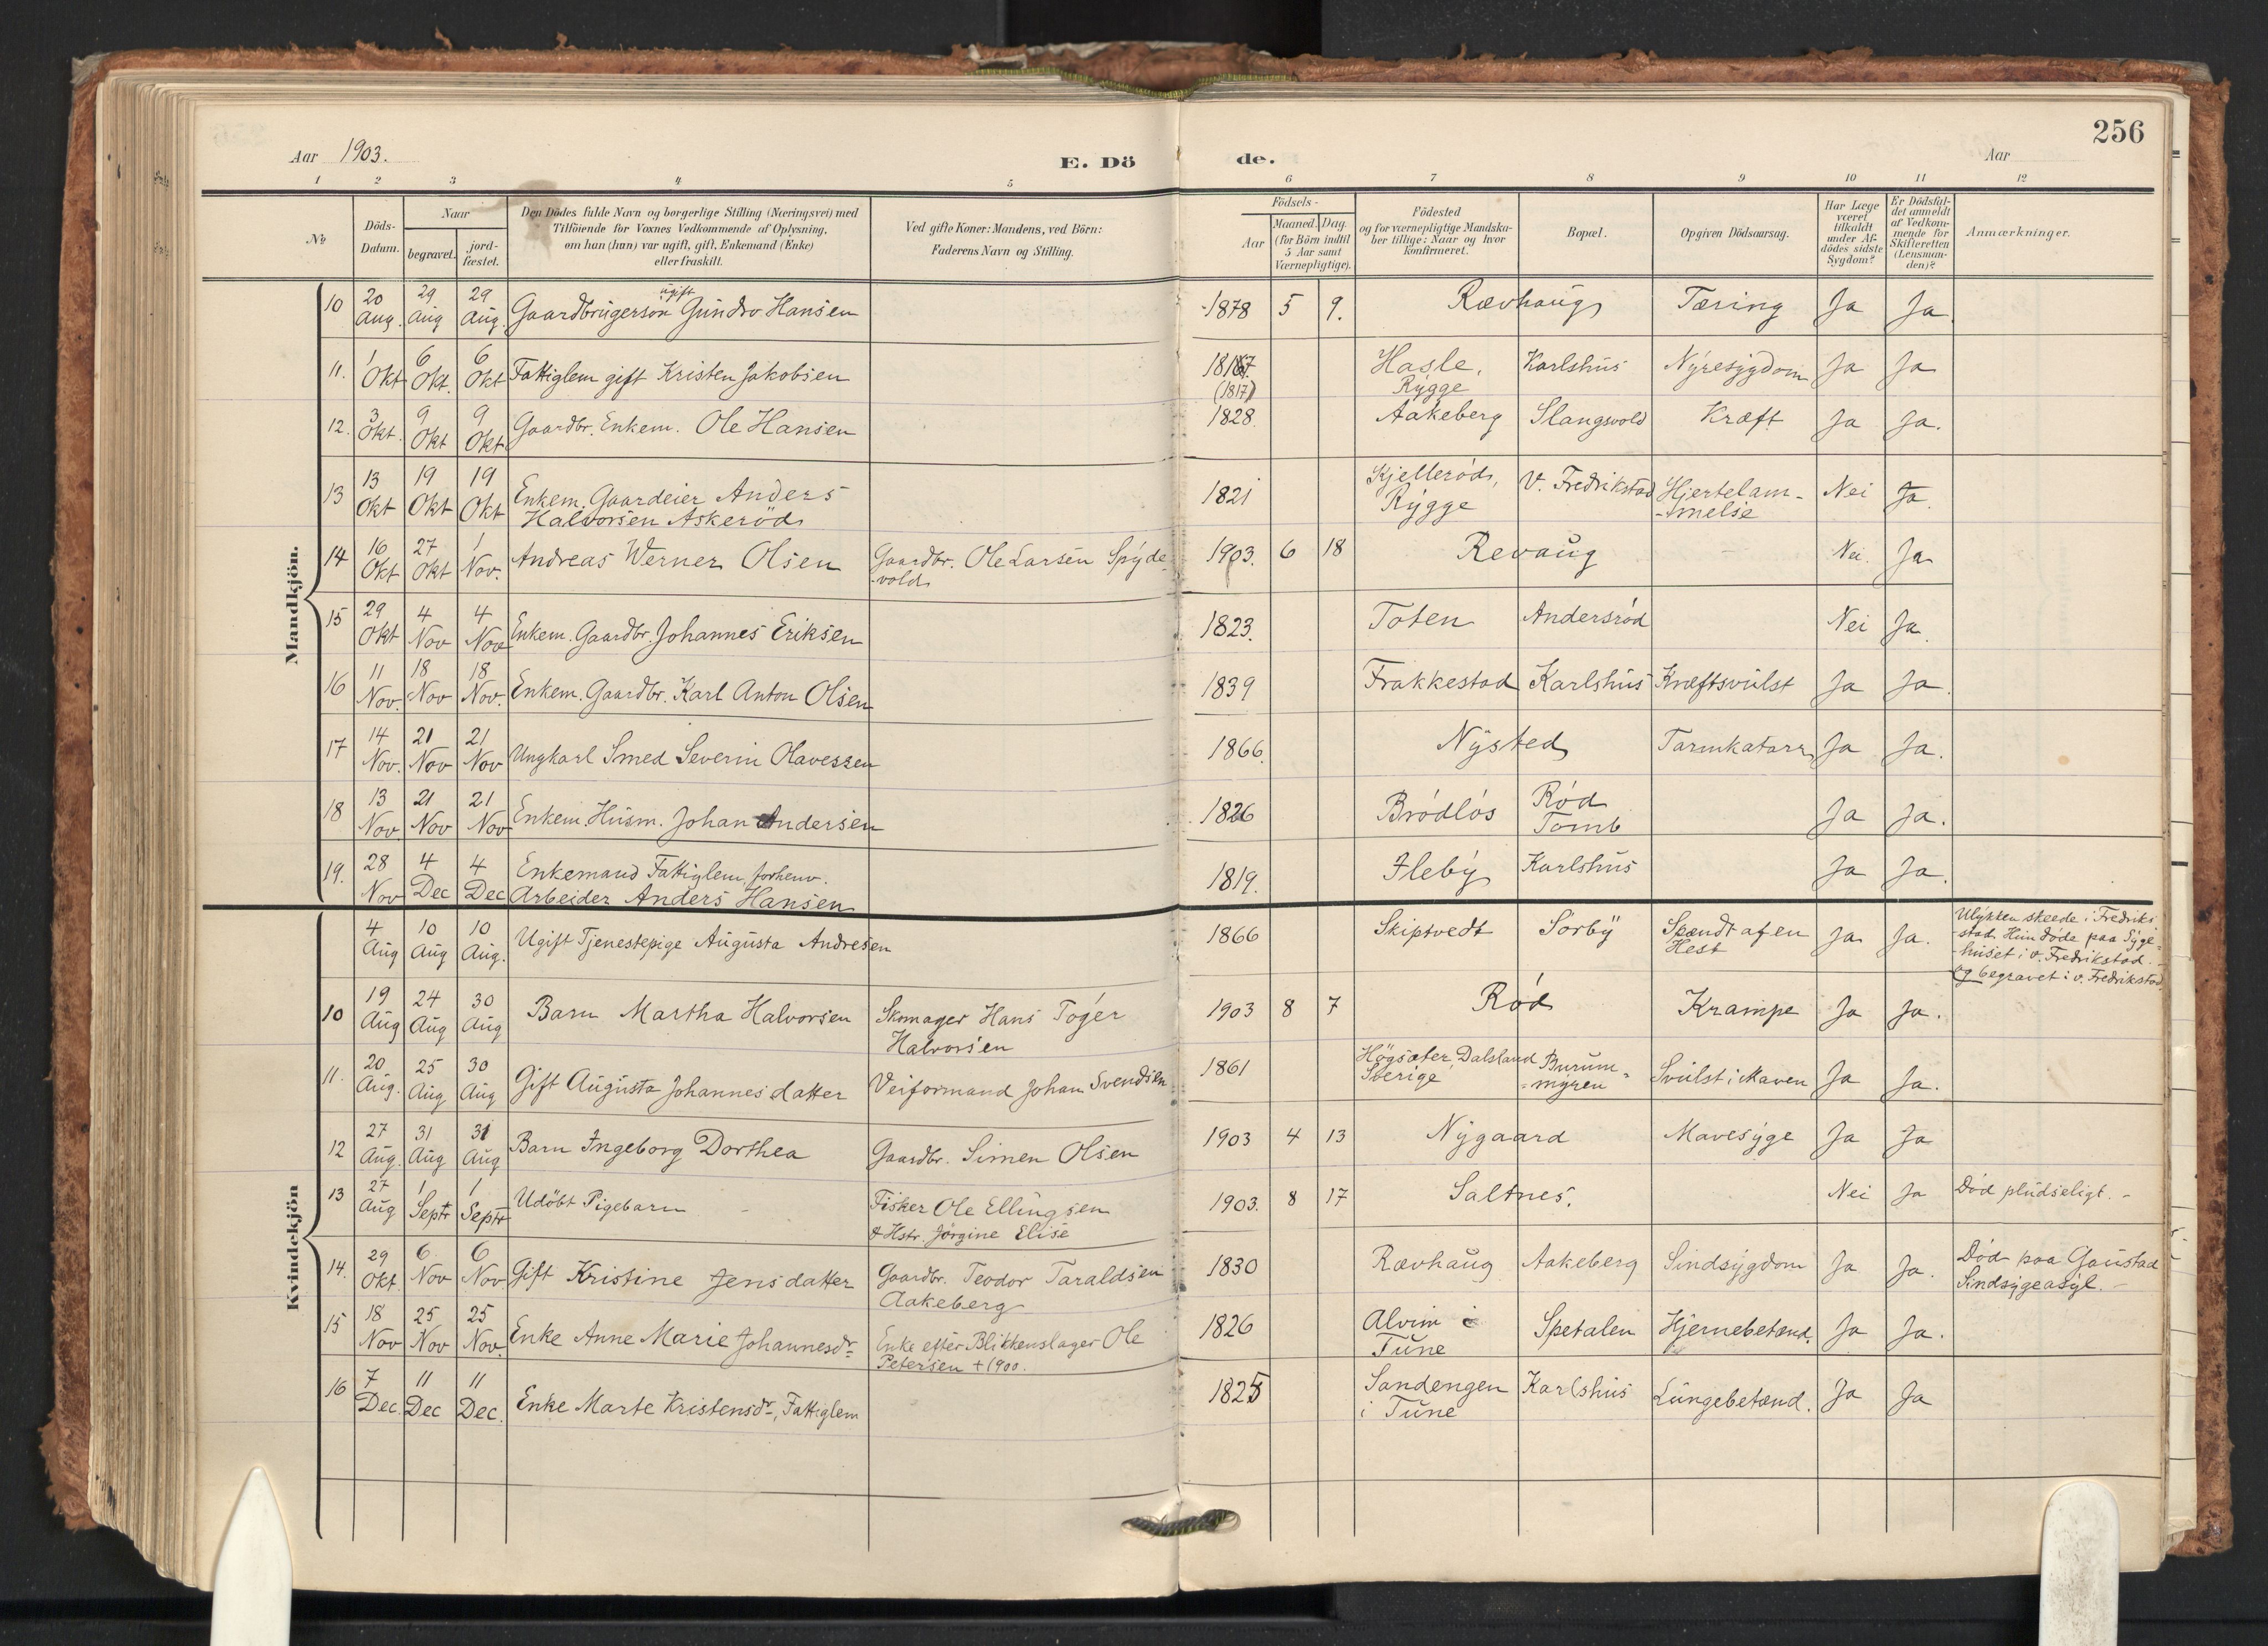 256
Aar 1903. E. Dö de. Aar
1 2 3 4 5 6 7 8 9 10 11 12
№ Döds-Datum. Naar begravet. jord-fæstet.
Den Dödes fulde Navn og borgerlige Stilling (Næringsvei) med
Tilföiende for Voxnes Vedkommende af Oplysning,
om han (hun) var ugift, gift, Enkemand (Enke)
eller fraskilt.
Ved gifte Koner: Mandens, ved Börn:
Faderens Navn og Stilling.
Födsels-
Aar Maaned. Dag.
(for Börn indtil
5 Aar samt
Værnepligtige).
Födested
og for værnepligtige Mandska-
ber tillige: Naar og hvor
konfirmeret.
Bopæl.
Opgiven Dödsaarsag.
Har Læge
været
tilkaldt
under Af-
dödes sidste
Sygdom?
Er Dödsfal-
det anmeldt
af Vedkom-
mende for
Skifteretten
(Lensman-
den)?
Anmærkninger.
Mandkjön.
10 20 Aug. 29 Aug 29 Aug. Gaardbrugersøn ugift Gundro Hansen 1878 5 9. Rævhaug Tæring Ja Ja.
11. 1 Okt 6 Okt. 6 Okt Fattiglem gift Kristen Jakobsen 1817 (1817) Hasle, Rygge Karlshus Nyresygdom Ja Ja
12. 3 Okt. 9 Okt 9 Okt Gaardbr. Enkem. Ole Hansen 1828. Aakeberg Slangsvold Kræft Ja Ja.
13 13 Okt 19 Okt 19 Okt Enkem. Gaardeier Anders
Halvorsen Askeröd 1821 Kjelleröd, Rygge V. Fredrikstad Hjertelam-
-melse Nei Ja.
14 16 Okt 27 Okt 1 Nov. Andreas Werner Olsen Gaardbr. Ole Larsen Spyde-
-vold 1903. 6 18 Revaug - Nei. Ja
15 29 Okt 4 Nov 4 Nov Enkem. Gaardbr. Johannes Eriksen 1823. Toten Andersröd Nei Ja.
16 11 Nov. 18 Nov 18 Nov. Enkem. Gaardbr. Karl Anton Olsen 1839 Frakkestad Karlshus Kræftsvulst Ja Ja.
17 14 Nov. 21 Nov 21 Nov Ungkarl Smed Severin Olavessen 1866. Nysted Tarmkatarr Ja Ja.
18 13 Nov 21 Nov 21 Nov Enkem. Husm. Johan Andersen 1826 Brödlös Röd
Tomb Ja Ja.
19. 28 Nov 4 Dec 4 Dec Enkemand Fattiglem, forhenv.
Arbeider Anders Hansen 1819. Ileby Karlshus Ja Ja.
Kvindekjön
4 Aug 10 Aug 10 Aug. Ugift Tjenestepige Augusta Andresen 1866 Skiptvedt Sorby Spændt af en
Hest Ja Ja. Ulykken skeede i Fredrik-
-stad. Hun döde paa Syge-
-huset i v. Fredrikstad.
og begravet i v. Fredrikstad.
10 19 Aug 24 Aug 30 Aug Barn Martha Halvorsen Skomager Hans Töger
Halvorsen 1903 8 7 Röd Krampe Ja Ja.
11. 20 Aug. 25 Aug 30 Aug Gift Augusta Johannesdatter Veiformand Johan Svendsen 1861 Högsæter, Dalsland
Sverige Burum-
-myren Svulst i Maven Ja Ja.
12 27 Aug. 31 Aug 31 Aug Barn Ingeborg Dorthea Gaardbr. Simen Olsen 1903 4 13 Nygaard Mavesyge Ja Ja
13 27 Aug 1 Septr 1 Septr Udöbt Pigebarn - Fisker Ole Ellingsen
& Hstr. Jörgine Elise 1903. 8 17 Saltnes. Nei Ja Död pludseligt. -
14. 29 Okt. 6 Nov 6 Nov Gift Kristine Jensdatter Gaardbr. Teodor Taraldsen
Aakeberg 1830 Rævhaug Aakeberg Sindsygdom Ja Ja. Död paa Gaustad
Sindsygeasyl. -
15 18 Nov 25 Nov 25 Nov. Enke Anne Marie Johannesdr Enke efter Blikkenslager Ole
Petersen + 1900. 1826 Alvim i
Tune Spetalen Hjernebetænd. Ja Ja.
16 7 Dec 11 Dec 11 Dec. Enke Marte Kristensdr, Fattiglem 1825 Sandengen
i Tune Karlshus Lungebetænd. Ja Ja